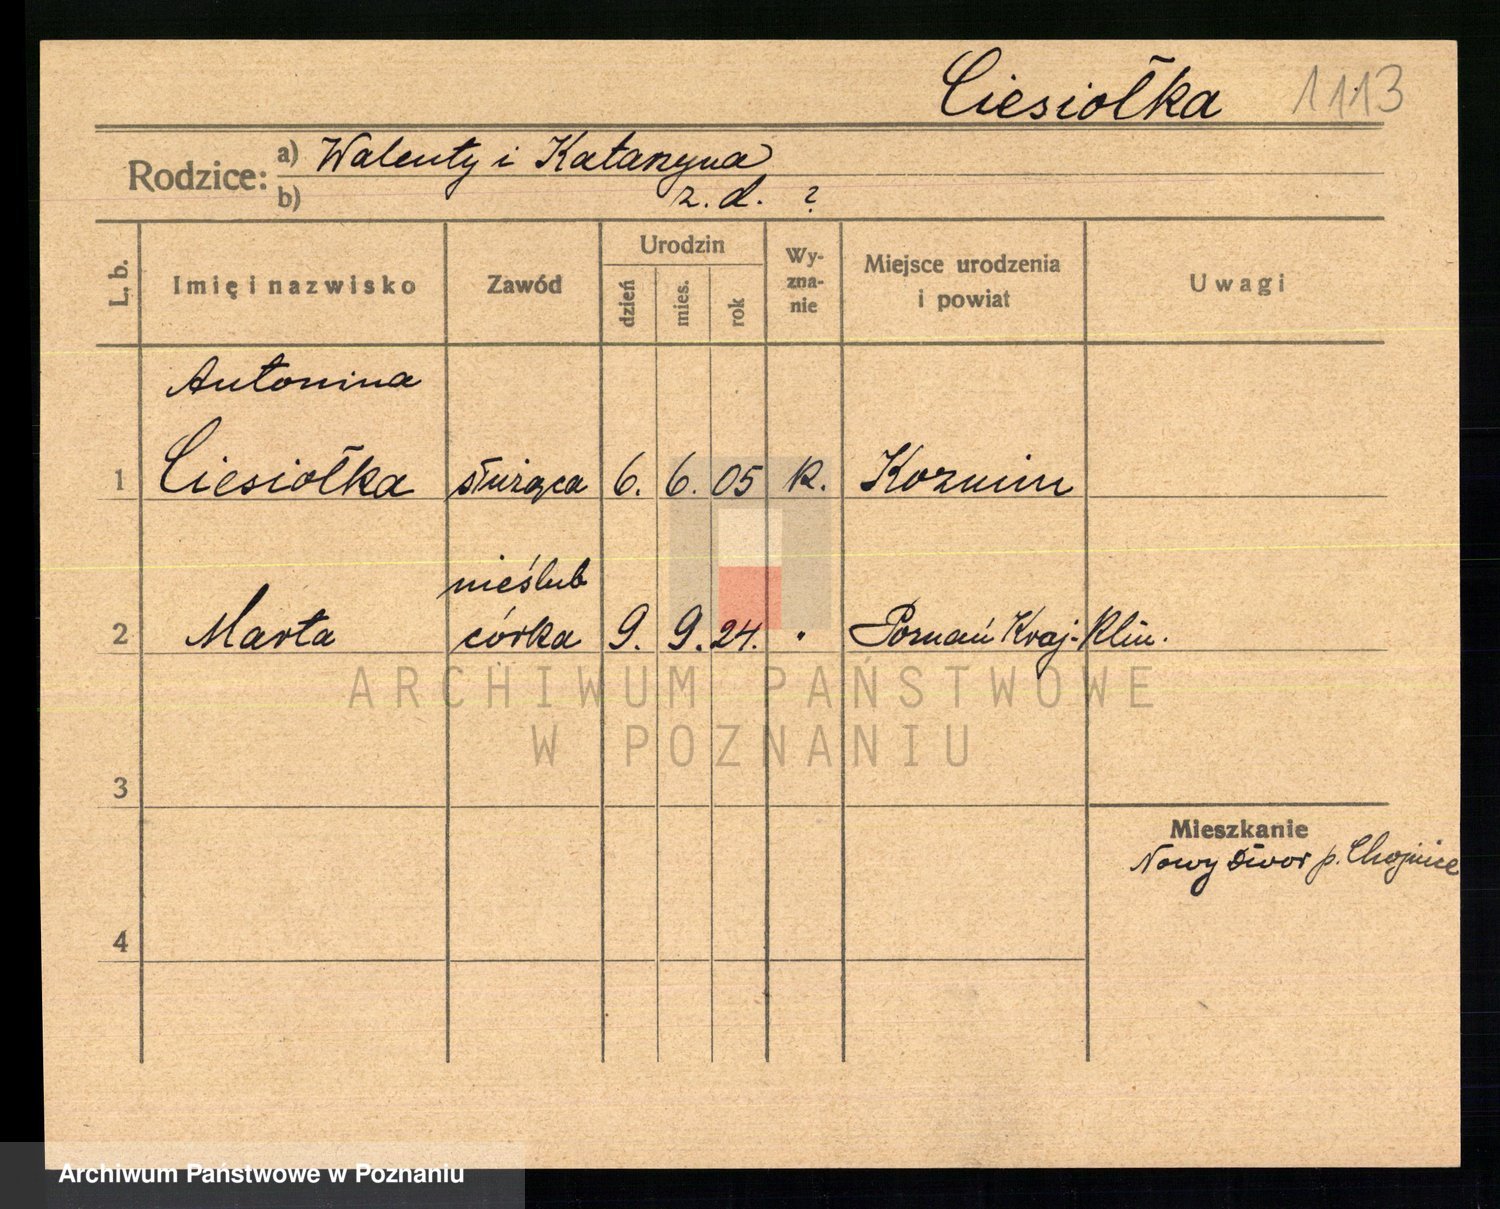 Ciesiołka 1113
Rodzice: a) Walenty i Katarzyna
b) z. d. ?
L. b.
Imię i nazwisko
Zawód
Urodzin
dzień
mies.
rok
Wy-
zna-
nie
Miejsce urodzenia
i powiat
Uwagi
Antonina
1 Ciesiołka służąca 6. 6. 05 R. Kozmin
nieślub
2 Marta córka 9. 9. 24. Poznań Kraj. Klin.
ARCHIWUM PAŃSTWOWE
W POZNANIU
3
Mieszkanie
Nowy Dwór p. Chojnice
4
Archiwum Państwowe w Poznaniu